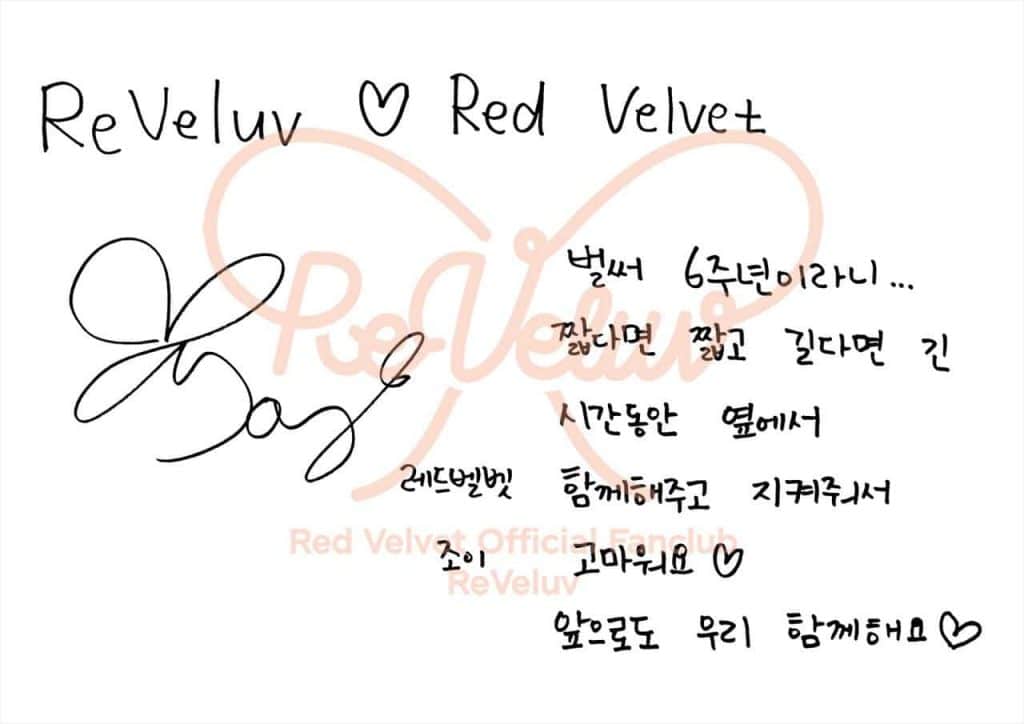 ReVeluv ♡ Red Velvet
ReVeluv
벌써 6주년이라니...
짧다면 짧고 길다면 긴
시간동안 옆에서
함께해주고 지켜줘서
고마워요♡
앞으로도 우리 함께해요♡
레드벨벳
조이
Joy
Red Velvet Official Fanclub
ReVeluv